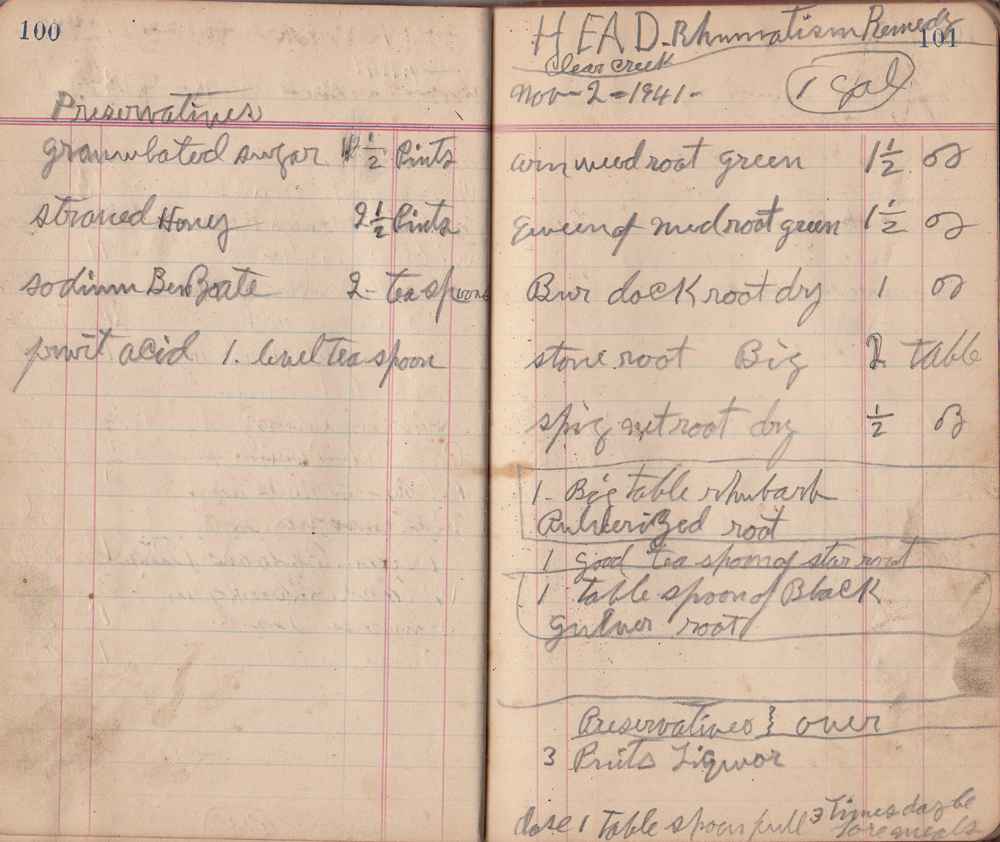 100
Preservatives
granulated sugar 1/2 Pints
strained Honey 2 1/2 Pints
sodium Benzoate 2 - tea spoons
fruit acid 1. level tea spoon
101
HEAD - Rhumatism Remedy
Clear Creek
Nov - 2 = 1941 -
1 gal
green 1 1/2 oz
Queen of med root green 1 1/2 oz
Bur dock root dry 1 oz
stone root Big 2 table
spig net root dry 1/2 oz
1 - Big table rhubarb
root
1 good tea spoon of star root
1 table spoon of Black
root
Preservatives } over
3 Pints Liquor
dose 1 Table spoon full 3 times day be
fore meals